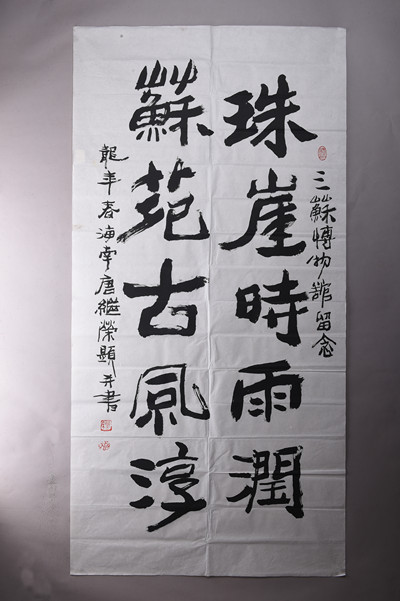 三蘇博物館留念
珠崖時雨潤
蘇苑古風淳
龍年春海南唐繼榮題并書